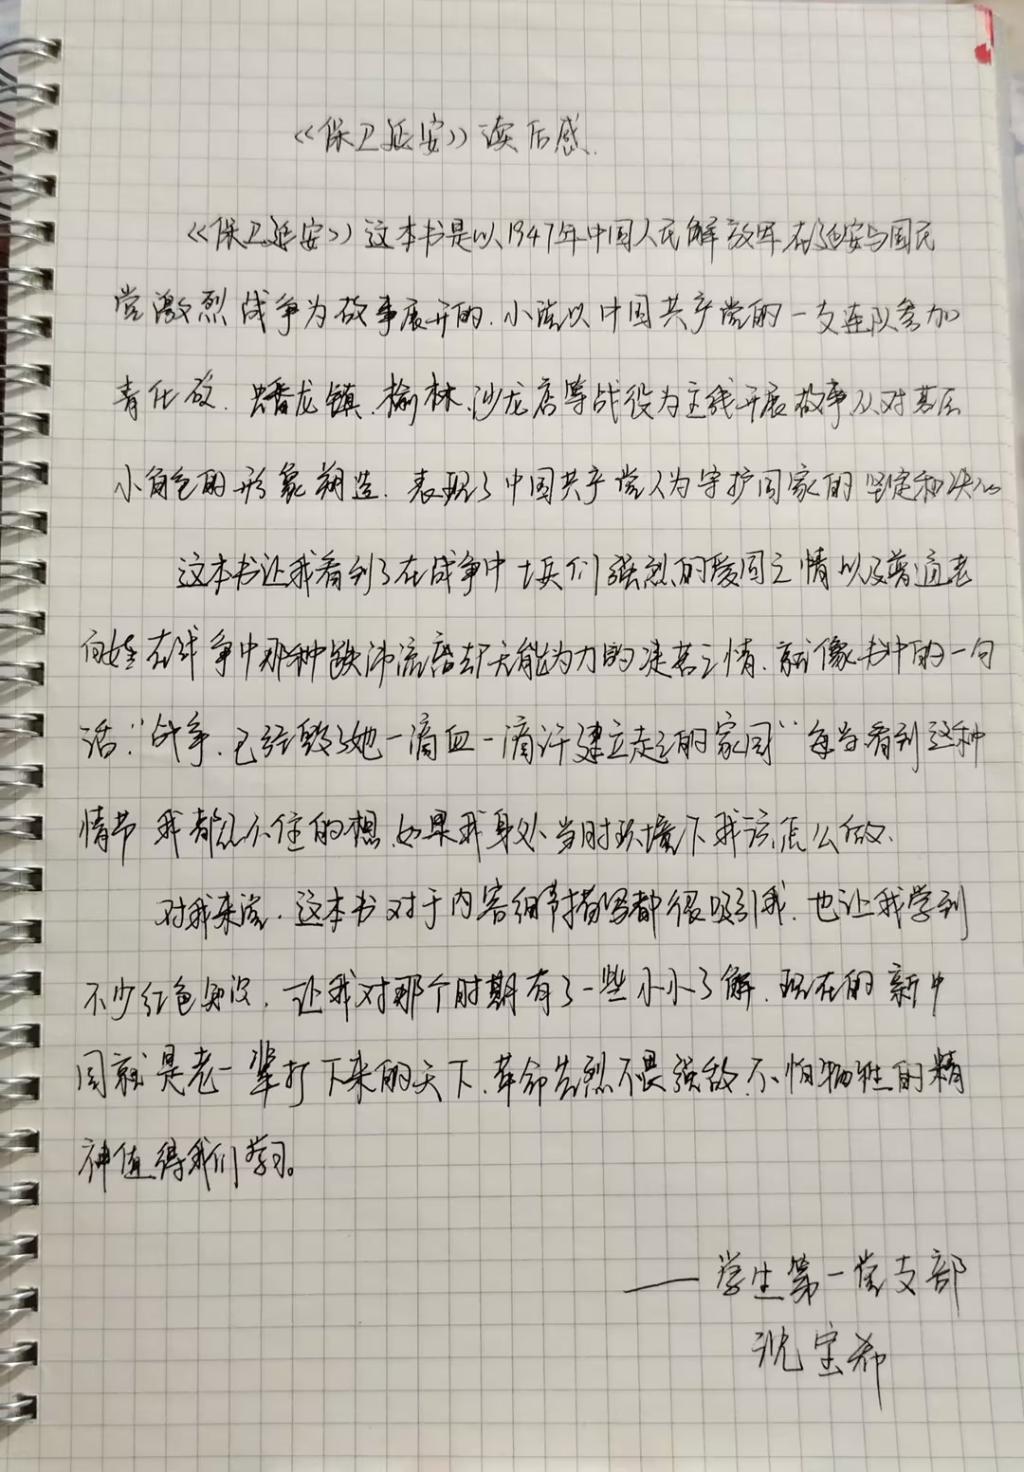 《保卫延安》读后感.
《保卫延安》这本书是以1947年中国人民解放军在延安与国民
党激烈战争为故事展开的.小说以中国共产党的一支连队参加
青化砭.蟠龙镇.榆林.沙龙店等战役为主线开展故事以对基层
小角色的形象塑造.表现了中国共产党人为守护国家的坚定和决心
这本书让我看到了在战争中士兵们强烈的爱国之情以及普通老
百姓在战争中那种颠沛流离却无能为力的凄苦之情.就像书中的一句
话:"战争.已经毁了她一滴血一滴汗建立起的家园"每当看到这种
情节我都忍不住的想.如果我身处当时环境下我该怎么做.
对我来说.这本书对于内容细节描写都很吸引我.也让我学到
不少红色知识.让我对那个时期有了一些小小了解.现在的新中
国就是老一辈打下来的天下.革命先烈不畏强敌不怕牺牲的精
神值得我们学习。
——学生第一党支部
沈宝希